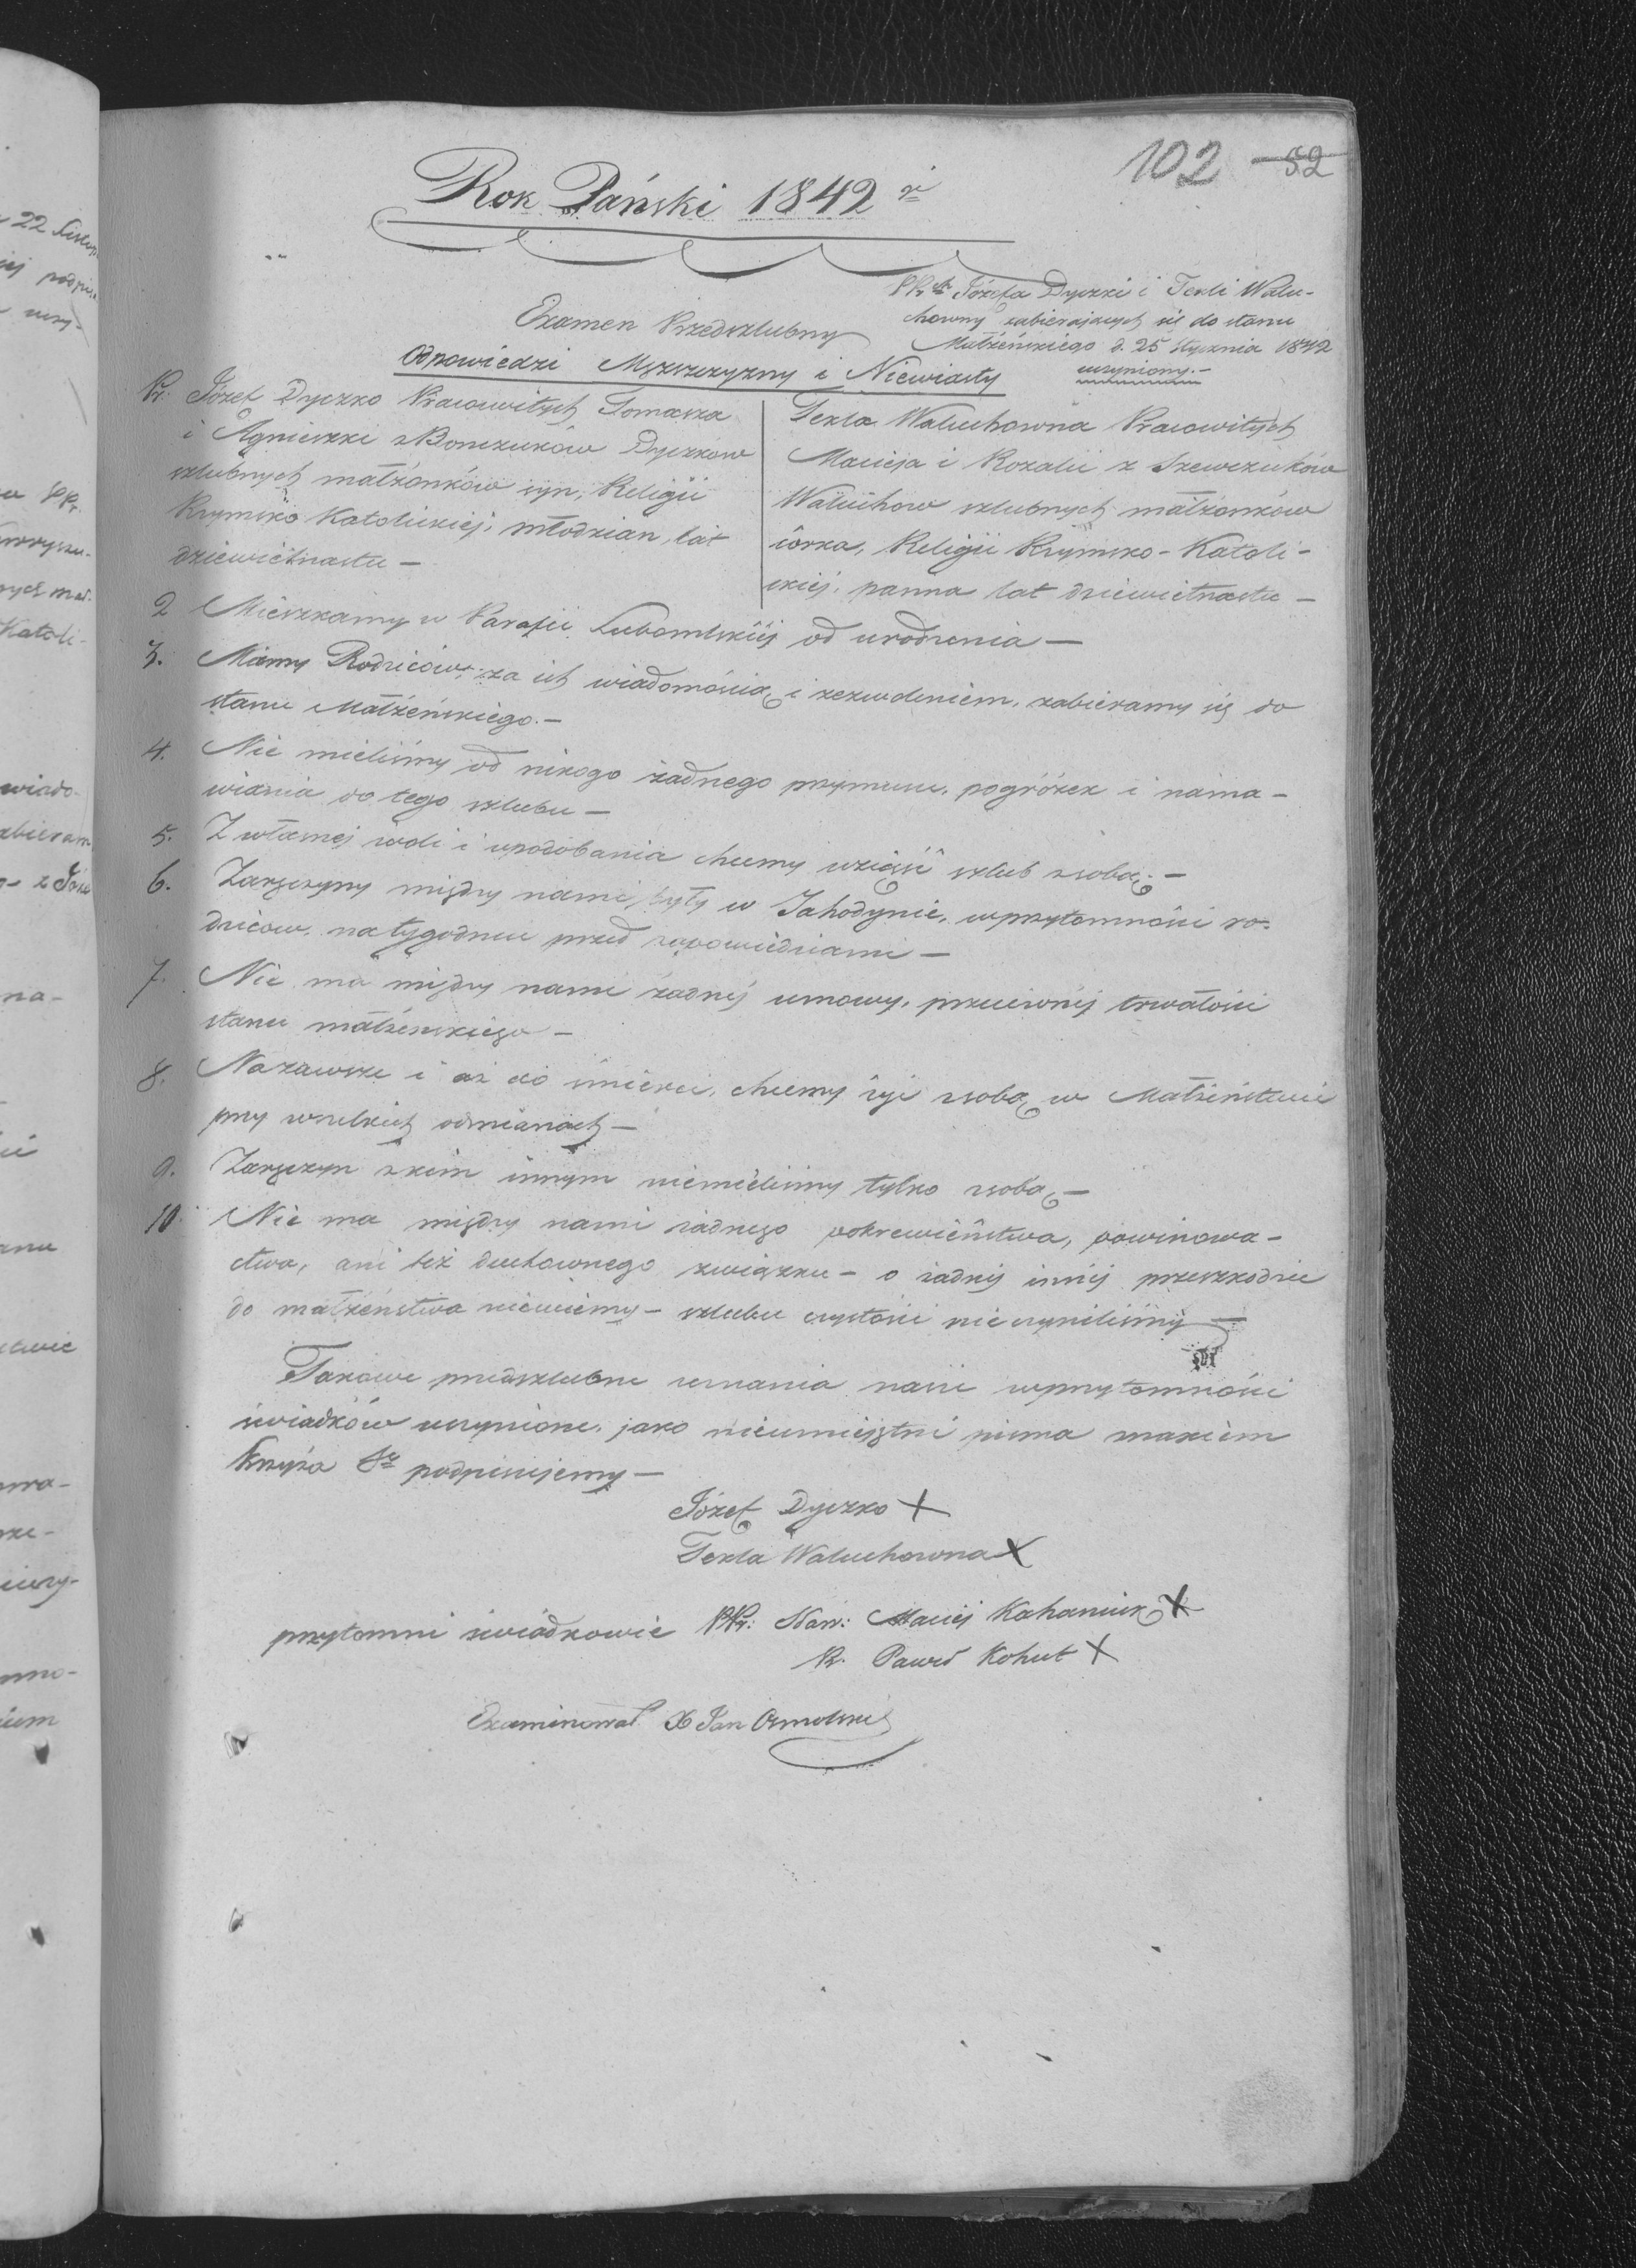 102 52
Rok Pański 1842 ri
Examen Przedszlubny
PPrch Józefa Dyczki i Tekli Walu-
chowny zabierających się do stanu
Małżeńskiego d. 25 Stycznia 1842
uczyniony.-
Odpowiedzi Męższczyzny i Niewiasty
Pr. Józef Dyczko Pracowitych Tomasza
i Agnieszki z Bonczuków Dyczków
szlubnych małżonków syn, Religii
Rzymsko Katolickiej, młodzian, lat
dziewiętnastu —
Tekla Waluchowna Pracowitych
Macieja i Rozalii z Szewczuków
Waluchow szlubnych małżonków
córka, Religii Rzymsko-Katoli-
ckiej, panna lat dziewietnastu —
2 Mieszkamy w Parafii Lubomlskiéj od urodzenia —
3. Mamy Rodziców, za ich wiadomością i zezwoleniem, zabieramy się do
stanu Małżeńskiego.—
4. Nie mieliśmy od nikogo żadnego przymusu, pogróżek i nama-
wiania do tego szlubu —
5. Z własnej woli i upodobania chcemy wziąść szlub z sobą.—
6. Zaręczyny między nami były w Jahodynie, w przytomności ro-
dziców, na tygodniu przed zapowiedziami —
7. Nie ma między nami żadnéj umowy, przeciwnéj trwałości
stanu małżenskiego —
8. Nazawsze i aż do śmierci, chcemy żyć z sobą w Małżeństwie
przy wszelkich odmianach —
9. Zaręczyn z kim innym niemieliśmy tylko z sobą —
10 Nie ma między nami żadnego pokrewieństwa, powinowa-
ctwa, ani też duchownego związku — o żadnéj innéj przeszkodzie
do małżeństwa niewiemy — szlubu czystości nie czyniliśmy —
Takowe przedszlubne zeznania nasze w przytomności
świadków uczynione, jako nieumiejętni pisma znakiem
Krzyża Sgo podpisujemy —
Józef Dyczko X
Tekla Waluchowna X
przytomni świadkowie PPr: Maciej Kahaniuk X
Pr. Paweł Kohut X
Examinował X Jan